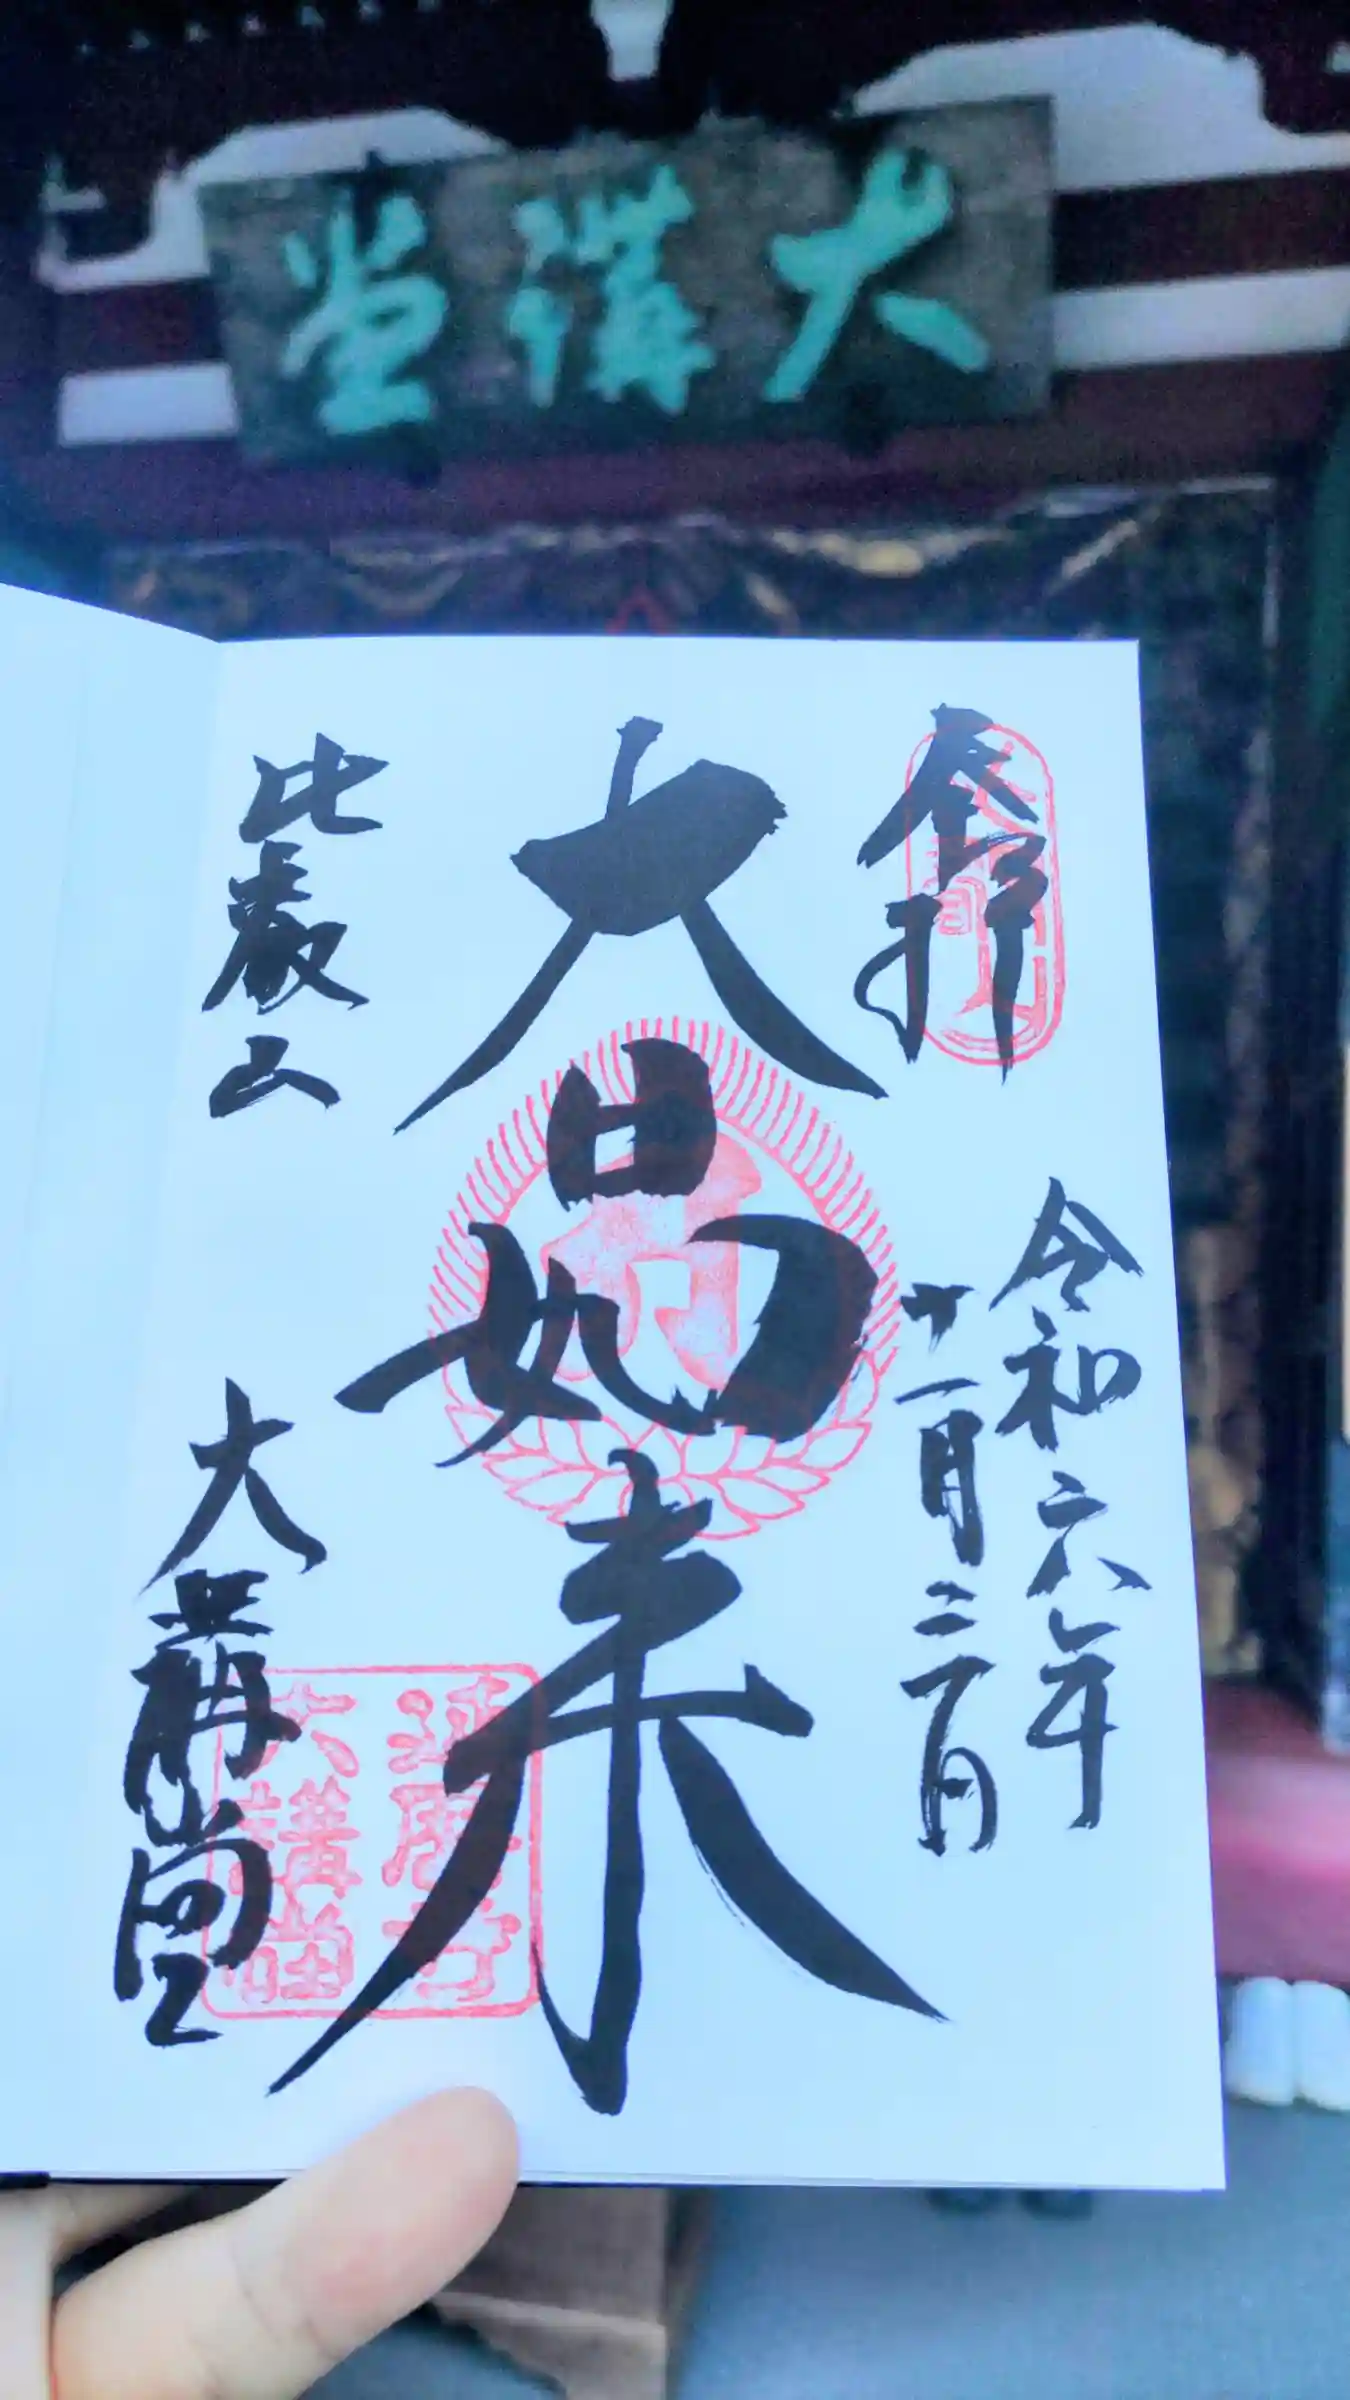 大講堂
奉拝
令和六年
十一月
大日如来
比叡山
大講堂
延暦寺
大講堂